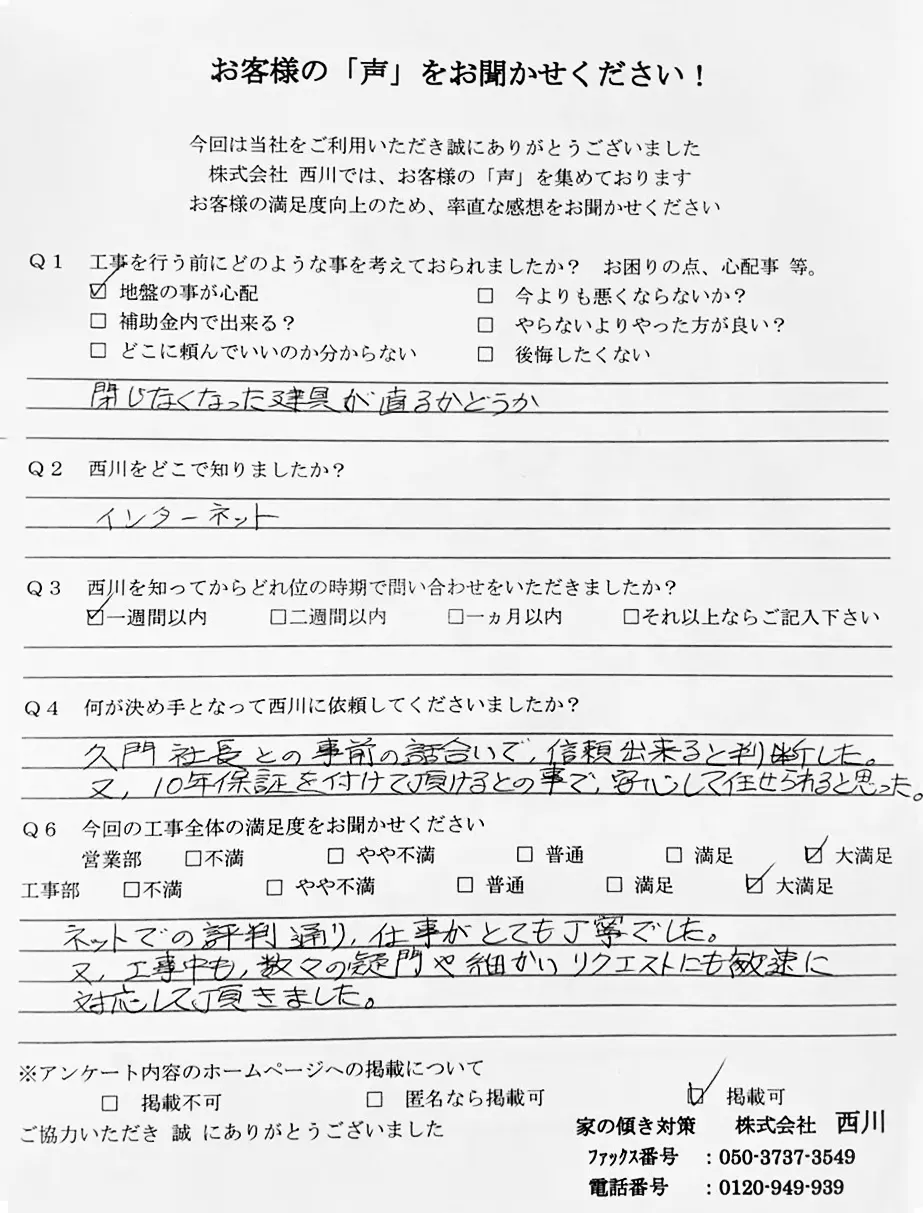 お客様の「声」をお聞かせください！
今回は当社をご利用いただき誠にありがとうございました
株式会社 西川では、お客様の「声」を集めております
お客様の満足度向上のため、率直な感想をお聞かせください
Q1 工事を行う前にどのような事を考えておられましたか？ お困りの点、心配事 等。
☑ 地盤の事が心配 □ 今よりも悪くならないか？
□ 補助金内で出来る？ □ やらないよりやった方が良い？
□ どこに頼んでいいのか分からない □ 後悔したくない
閉じなくなった建具が直るかどうか
Q2 西川をどこで知りましたか？
インターネット
Q3 西川を知ってからどれ位の時期で問い合わせをいただきましたか？
☑一週間以内 □二週間以内 □一ヵ月以内 □それ以上ならご記入下さい
Q4 何が決め手となって西川に依頼してくださいましたか？
久門社長との事前の話合いで、信頼出来ると判断した。
又、10年保証を付けて頂けるとの事で、安心して任せられると思った。
Q6 今回の工事全体の満足度をお聞かせください
営業部 □不満 □ やや不満 □ 普通 □ 満足 ☑ 大満足
工事部 □不満 □ やや不満 □ 普通 □ 満足 ☑ 大満足
ネットでの評判通り、仕事がとても丁寧でした。
又、工事中も、数々の疑問や細かいリクエストにも敏速に
対応して頂きました。
※アンケート内容のホームページへの掲載について
□ 掲載不可 □ 匿名なら掲載可 ☑ 掲載可
ご協力いただき 誠 にありがとうございました
家の傾き対策 株式会社 西川
ﾌｧｯｸｽ番号 ：050-3737-3549
電話番号 ：0120-949-939